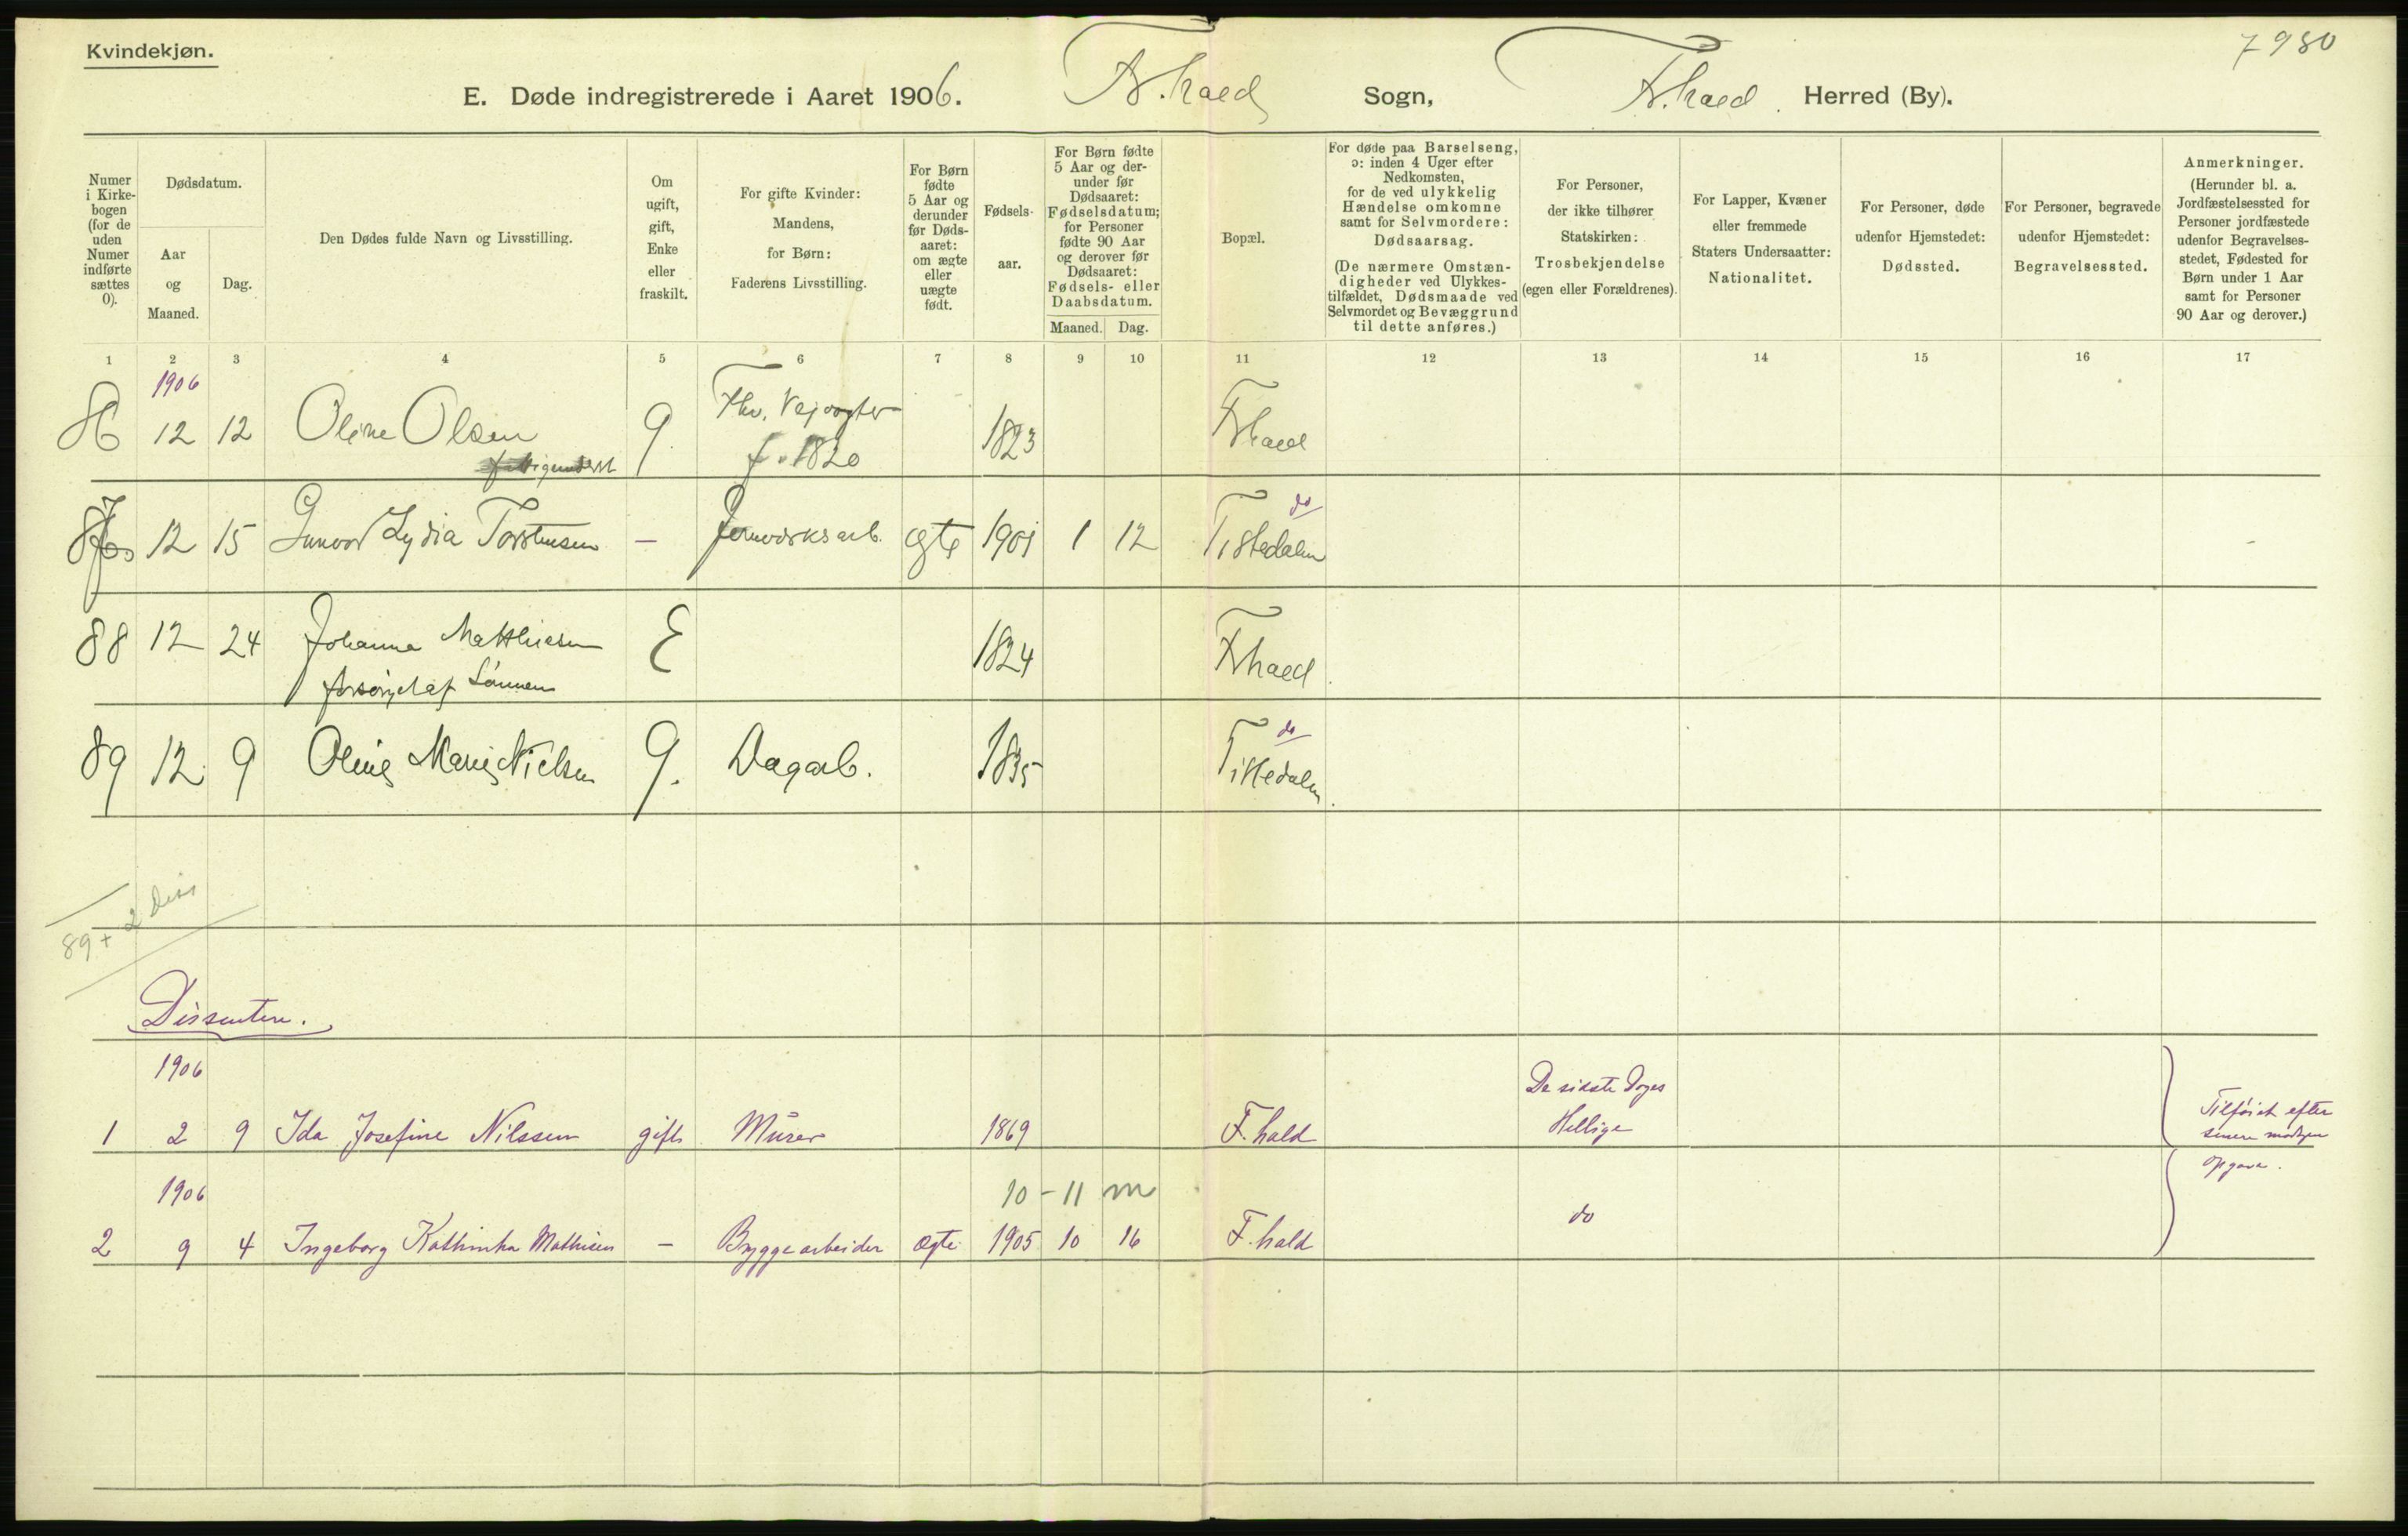 Kvindekjøn.
7980
E. Døde indregistrerede i Aaret 1906. Fr.hald Sogn, Fr.hald. Herred (By).
Numer i Kirkebogen (for de uden Numer indførte sættes 0).
Dødsdatum.
Aar og Maaned.
Dag.
Den Dødes fulde Navn og Livsstilling.
Om ugift, gift, Enke eller fraskilt.
For gifte Kvinder: Mandens, for Børn: Faderens Livsstilling.
For Børn fødte 5 Aar og derunder før Dødsaaret: om ægte eller uægte født.
Fødselsaar.
For Børn fødte 5 Aar og derunder før Dødsaaret: Fødselsdatum; for Personer fødte 90 Aar og derover før Dødsaaret: Fødsels- eller Daabsdatum.
Maaned. Dag.
Bopæl.
For døde paa Barselseng, ɔ: inden 4 Uger efter Nedkomsten, for de ved ulykkelig Hændelse omkomne samt for Selvmordere: Dødsaarsag.
(De nærmere Omstændigheder ved Ulykkestilfældet, Dødsmaade ved Selvmordet og Bevæggrund til dette anføres.)
For Personer, der ikke tilhører Statskirken: Trosbekjendelse (egen eller Forældrenes).
For Lapper, Kvæner eller fremmede Staters Undersaatter: Nationalitet.
For Personer, døde udenfor Hjemstedet: Dødssted.
For Personer, begravede udenfor Hjemstedet: Begravelsessted.
Anmerkninger.
(Herunder bl. a. Jordfæstelsessted for Personer jordfæstede udenfor Begravelsesstedet, Fødested for Børn under 1 Aar samt for Personer 90 Aar og derover.)
1 2 3 4 5 6 7 8 9 10 11 12 13 14 15 16 17
1906
86 12 12 Oline Olsen g. Fhv. Vejvogter 1823 Frhald
fattigunderst f. 1820
do
87 12 15 Gunvor Lydia Torstensen – Jernverksarb. ægte 1901 1 12 Tistedalen
88 12 24 Johanna Matthiesen E 1824 Frhald.
forsørget af Sønnen
do
89 12 9 Oline Marie Nielsen g. Dagarb. 1835 Tistedalen.
89 + 2 diss
Dissentere.
1906
De sidste Dages
1 2 9 Ida Josefine Nilssen gift Murer 1869 F.hald Hellige Tilføiet efter
senere modtgen
opgave.
1906 10 – 11 m
2 9 4 Ingeborg Kathinka Mathisen – Bryggearbeider ægte 1905 10 16 F.hald do